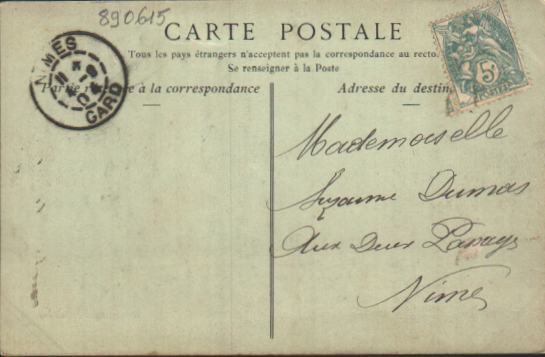 890615
CARTE POSTALE
Tous les pays étrangers n'acceptent pas la correspondance au recto.
Se renseigner à la Poste
Partie à la correspondance
Adresse du destin
NIMES
GARD
5c
Mademoiselle
Suzanne Dumas
Aux Deux
Nimes